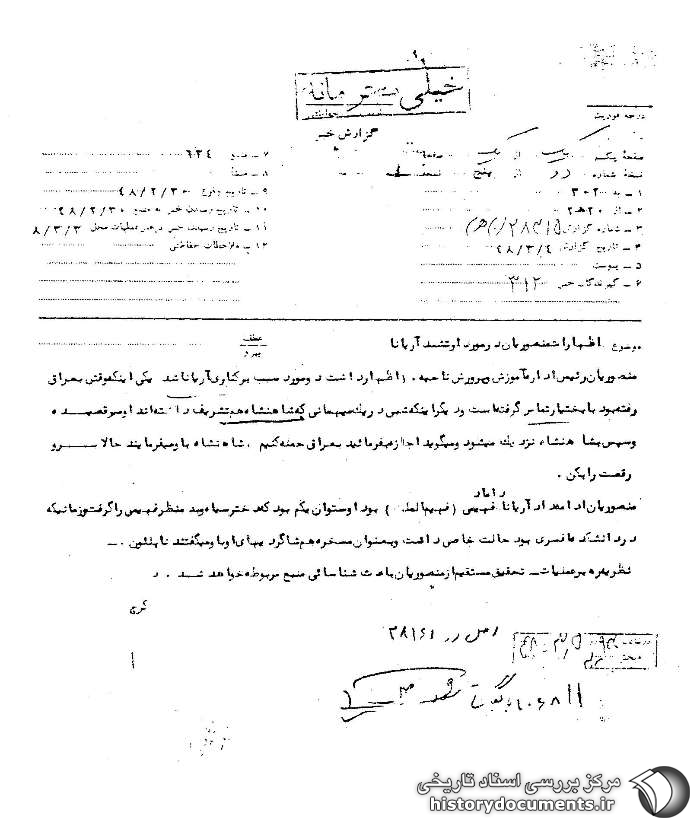 خیلی محرمانه
گزارش خبر
درجه فوریت
صفحهٔ یک از یک صفحه
نسخهٔ شماره دو از پنج نسخه
۱ ـ به ۳۰۲
۲ ـ از ۲۰ هـ ۲
۳ ـ شماره گزارش
۴ ـ تاریخ گزارش ۴۸/۳/۴
۵ ـ پیوست
۶ ـ گیرندگان خبر ۳۱۲
۷ ـ منبع ۶۳۴
۸ ـ منشأ
۹ ـ تاریخ وقوع ۴۸/۲/۳۰
۱۰ ـ تاریخ رسیدن خبر به منبع ۴۸/۲/۳۰
۱۱ ـ تاریخ رسیدن خبر به رهبر عملیات محل ۸/۳/۳
۱۲ ـ ملاحظات حفاظتی
موضوع اظهارات منصوریان در مورد ارتشبد آریانا
عطف
پیرو
منصوریان رئیس اداره آموزش و پرورش ناحیه ۱ اظهار داشت در مورد سبب برکناری آریانا شد یکی اینکه وقتی بعراق
رفته بود با بختیار تماس گرفته است و دیگر اینکه شبی در یک میهمانی که شاهنشاه هم تشریف داشته اند او میرقصیده
و سپس بشاهنشاه نزدیک میشود و میگوید اجازه میفرمائید بعراق حمله کنیم . شاهنشاه باو میفرمایند حالا برو
رقصت را بکن .
منصوریان ادامه داد آریانا داماد فهیمی ( فهیم الملک ) بود او ستوان یکم بود که دختر سیاه و بد منظر فهیمی را گرفت و زمانیکه
در دانشکده افسری بود حالت خاصی داشت و بعنوان مسخره هم شاگردیهای او باو میگفتند ناپلئون . ــ
نظریه رهبر عملیات ــ تحقیق مستقیم از منصوریان باعث شناسائی منبع مربوطه خواهد شد . د
کرج
اصل در ۳۸۱۶۱
مرکز بررسی اسناد تاریخی
historydocuments.ir